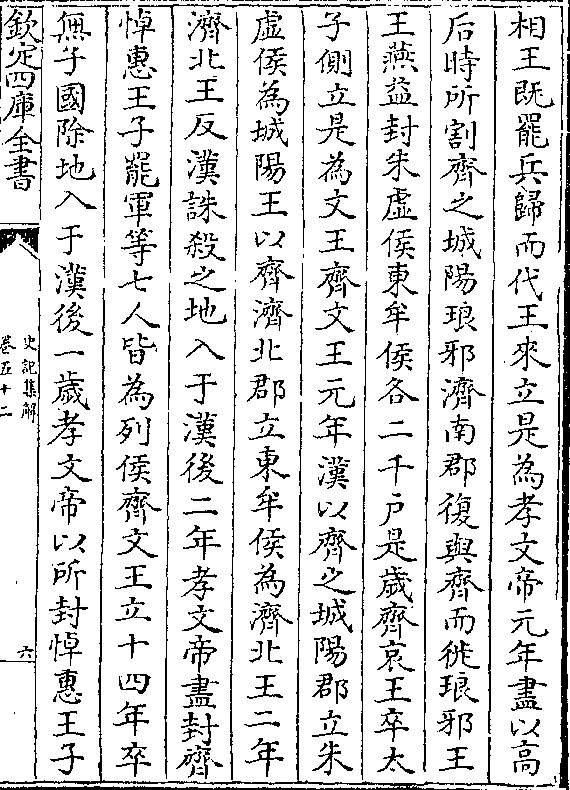 相王既罷兵歸而代王來立是為孝文帝元年盡以高
后時所割齊之城陽琅邪濟南郡復與齊而徙琅邪王
王燕益封朱虛侯東牟侯各二千戶是歲齊哀王卒太
子側立是為文王齊文王元年漢以齊之城陽郡立朱
虛侯為城陽王以齊濟北郡立東牟侯為濟北王二年
濟北王反漢誅殺之地入于漢後二年孝文帝盡封齊
悼惠王子罷軍等七人皆為列侯齊文王立十四年卒
無子國除地入于漢後一歲孝文帝以所封悼惠王子
欽定四庫全書
史記集解
卷五十二
六